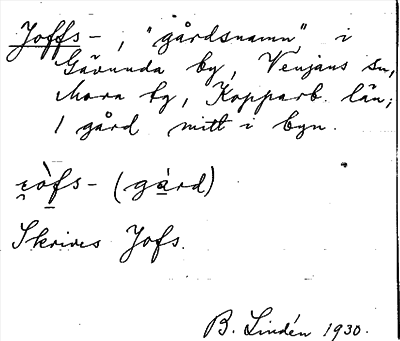 Joffs-, "gårdsnamn" i
Gävunda by, Venjans sn,
Mora tg, Kopparb. län;
1 gård mitt i byn.
ɪ̯òfs- (gàrd)
Skrives Jofs.
B. Lindén 1930.